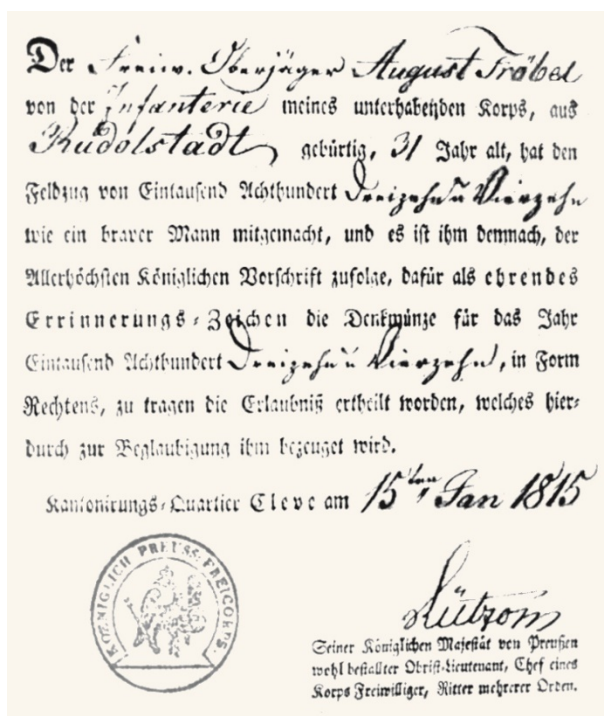 Der Freiw. Oberjäger August Fröbel
von der Infanterie meines unterhabenden Korps, aus
Rudolstadt gebürtig, 31 Jahr alt, hat den
Feldzug von Eintausend Achthundert Dreizehn u Vierzehn
wie ein braver Mann mitgemacht, und es ist ihm demnach, der
Allerhöchsten Königlichen Vorschrift zufolge, dafür als ehrendes
Errinnerungs-Zeichen die Denkmünze für das Jahr
Eintausend Achthundert Dreizehn u Vierzehn, in Form
Rechtens, zu tragen die Erlaubniß ertheilt worden, welches hier-
durch zur Beglaubigung ihm bezeuget wird.
Kantonirungs-Quartier Cleve am 15ten Jan 1815
KOENIGLICH PREUSS: FREICORPS.
Lützow
Seiner Königlichen Majestät von Preußen
wohl bestallter Obrist-Lieutenant, Chef eines
Korps Freiwilliger, Ritter mehrerer Orden.